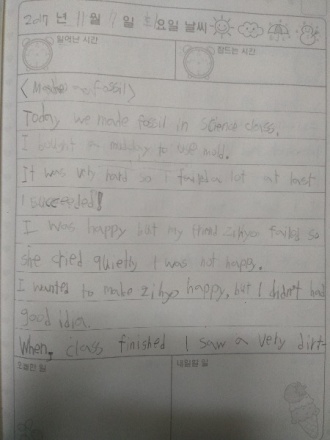 2017 년 11 월 일 요일 날씨
일어난 시간 잠드는 시간
< a Fossil>
Today we made fossil in science class.
I to use mold.
It was very hard so i failed a lot at last
I succeeded!
I was happy but my friend zihyo failed so
she cried quietly I was not happy.
I wanted to make zihyo happy, but I didn't had
good idia.
When, class finished I saw a very dirt
오늘한 일 내일할 일